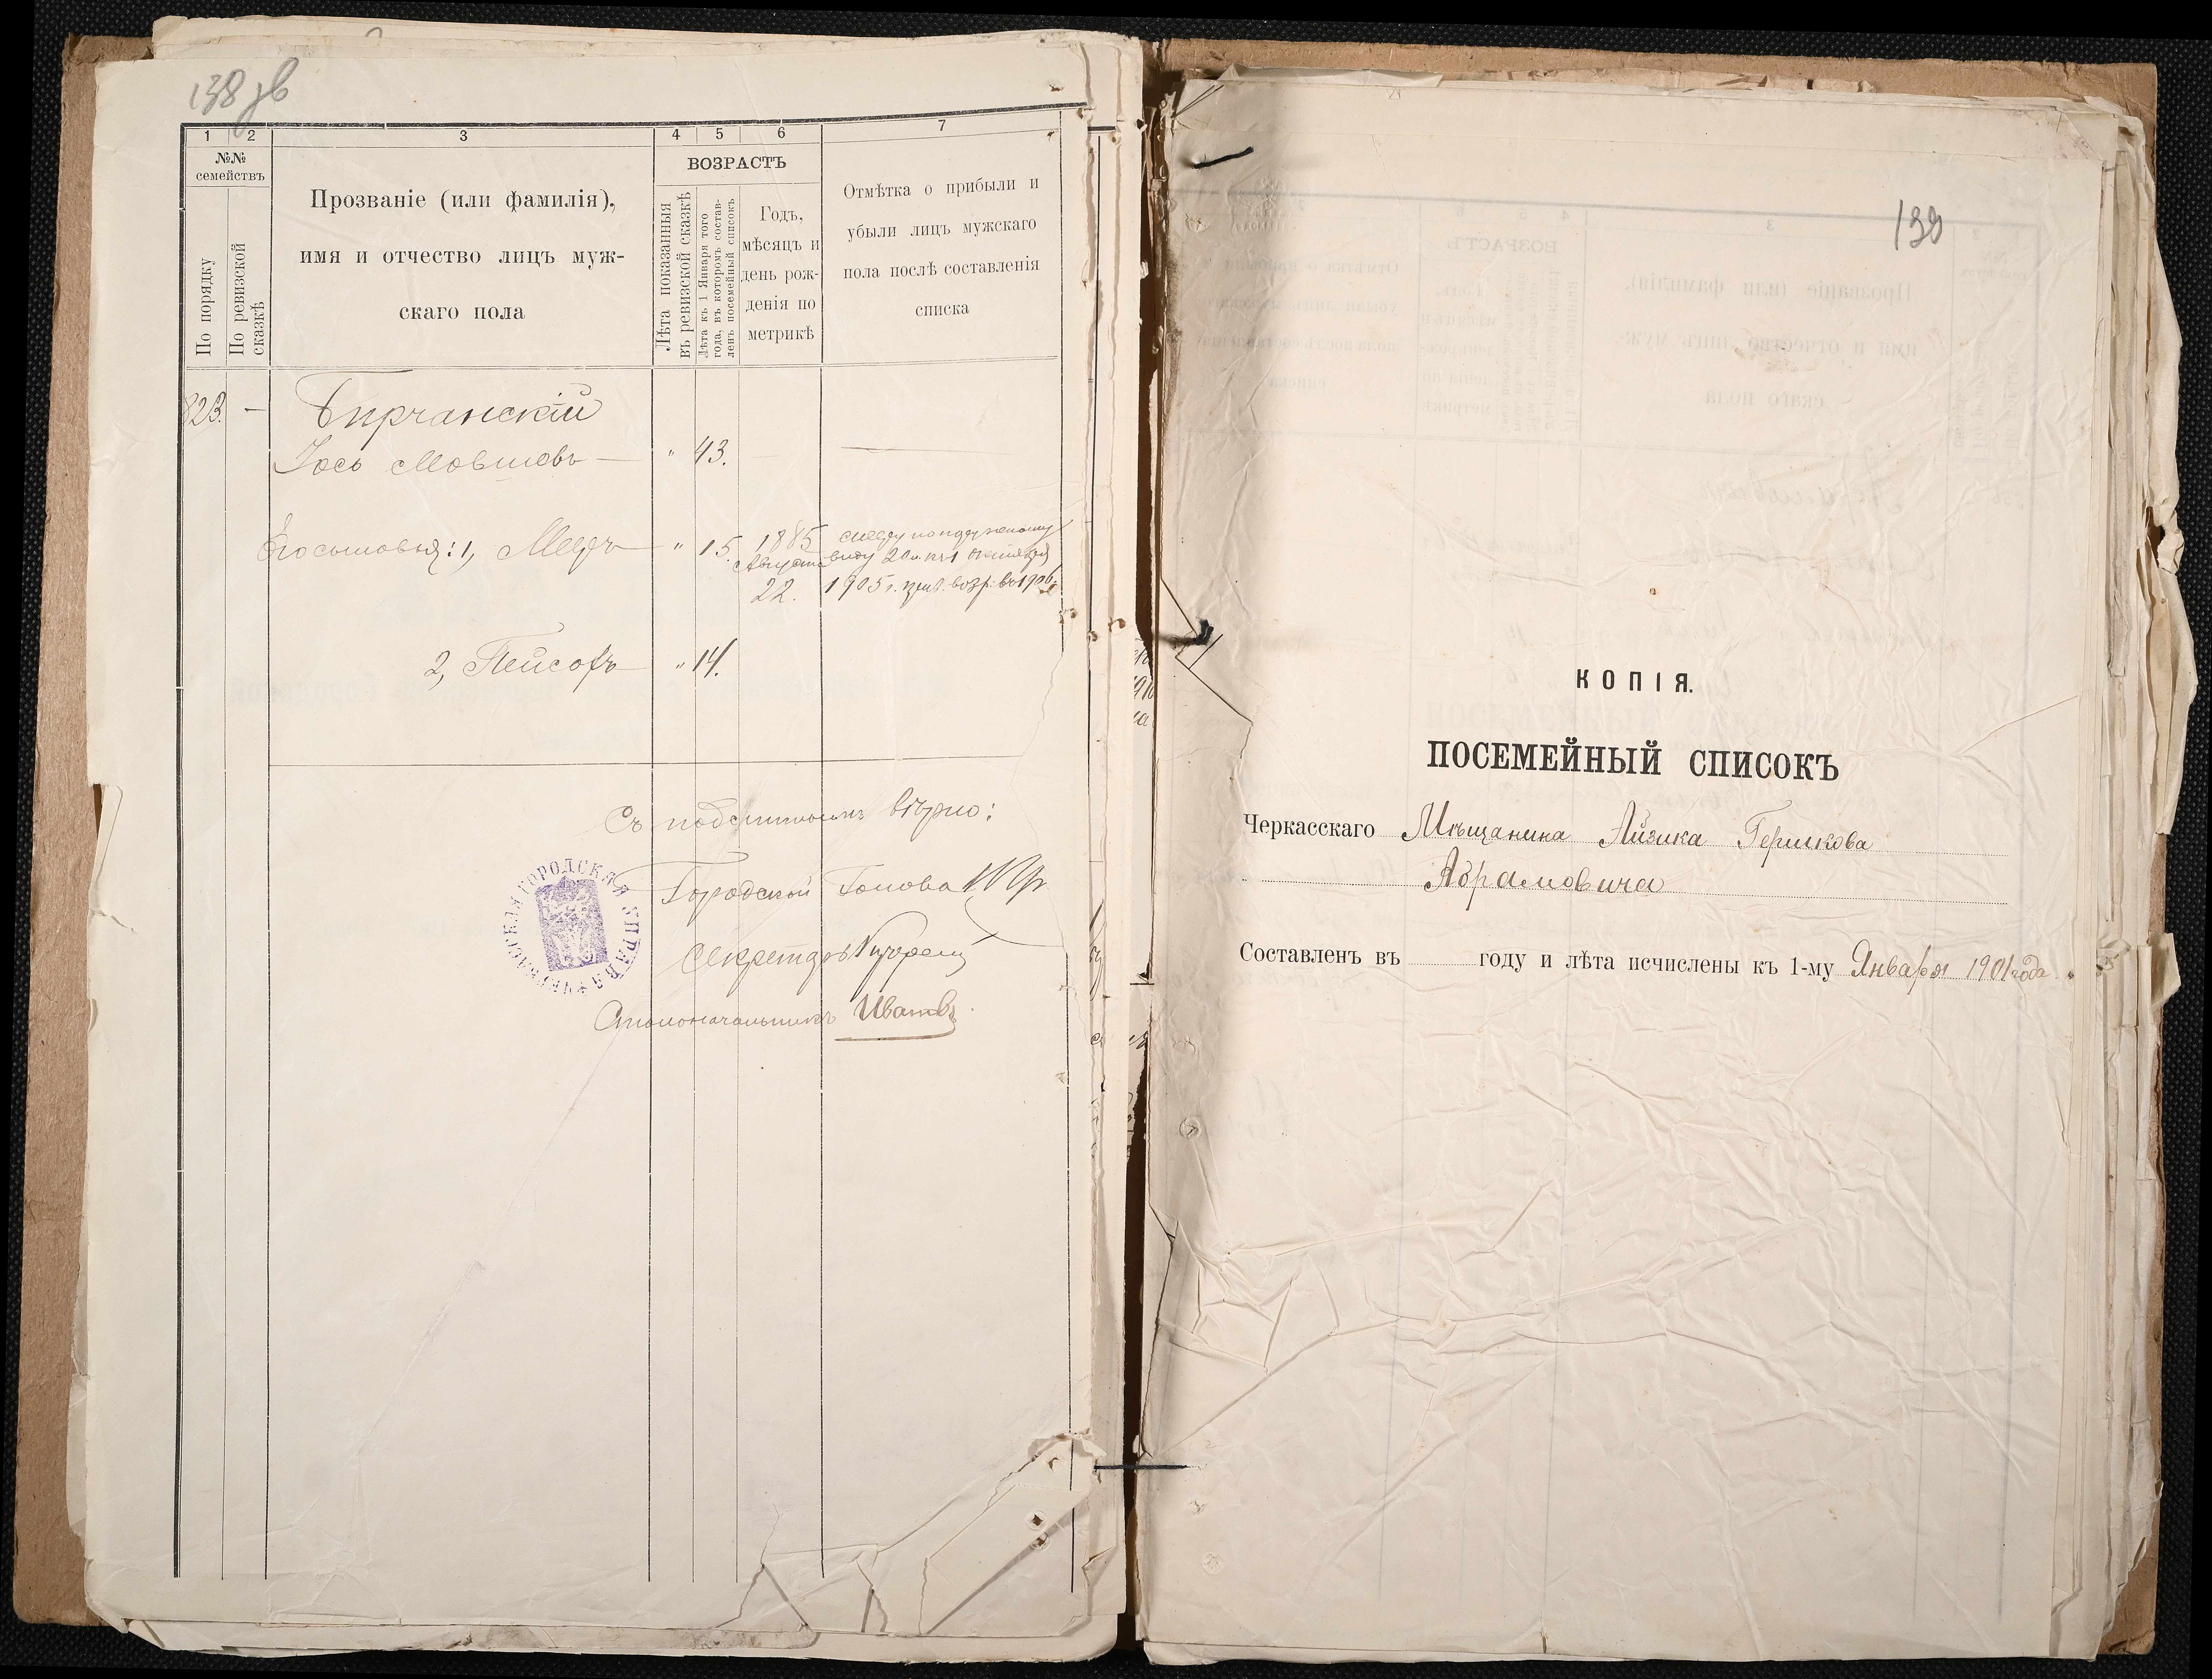 138 зв
1 2 3 4 5 6 7
№№ семействъ
По порядку
По ревизской сказкѣ
Прозваніе (или фамилія),
имя и отчество лицъ муж-
скаго пола
ВОЗРАСТЪ
Лѣта показанныя въ ревизской сказкѣ
Лѣта къ 1 Января того года, въ которомъ составленъ посемейный списокъ
Годъ,
мѣсяцъ и
день рож-
денія по
метрикѣ
Отмѣтка о прибыли и
убыли лицъ мужскаго
пола послѣ составленія
списка
823. —
Бирчанскій
Іось Мовшовъ — " 43.
Его сыновья: 1, Мееръ — " 15. 1885
Августа
22.
виду 20 л. къ 1 октября
1905 г. возр. въ 1906 г.
2, Пейсахъ — " 14.
Съ подлиннымъ вѣрно:
Городской Голова
Секретарь
Столоначальникъ Ивановъ
ЧЕРКАССКАЯ ГОРОДСКАЯ УПРАВА
139
КОПІЯ.
ПОСЕМЕЙНЫЙ СПИСОКЪ
Черкасскаго Мѣщанина Айзика Гершкова
Абрамовича
Составленъ въ году и лѣта исчислены къ 1-му Января 1901 года.